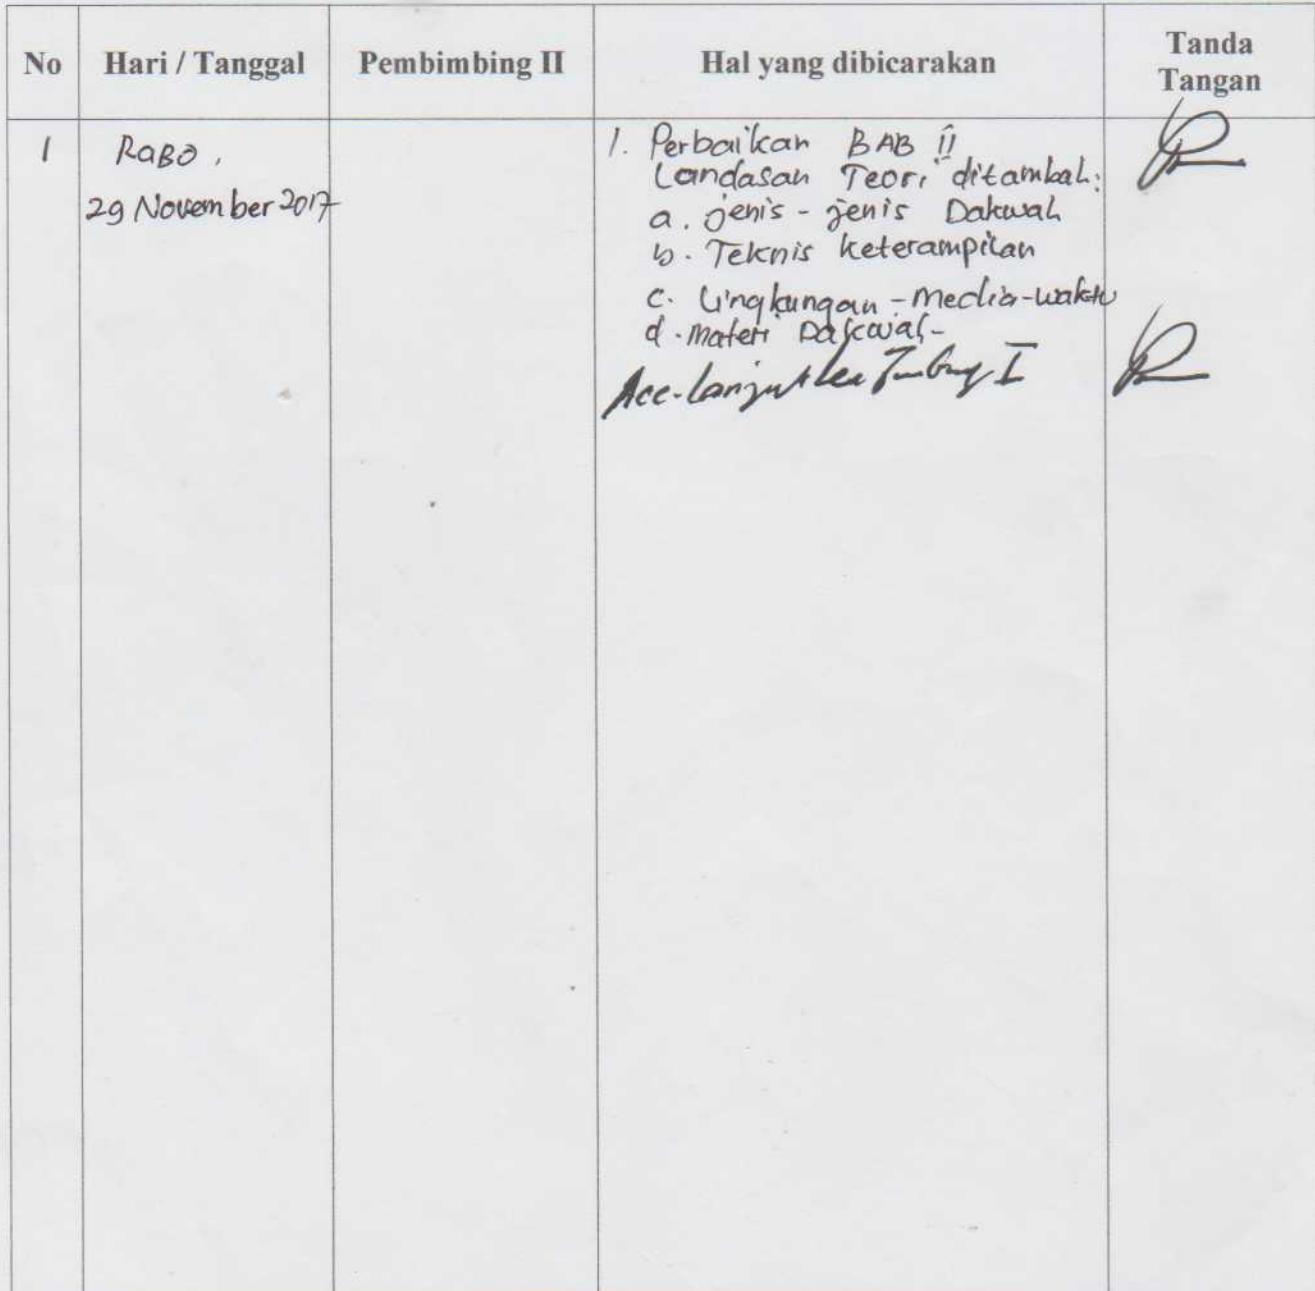 No Hari / Tanggal Pembimbing II Hal yang dibicarakan Tanda Tangan
1 RaBO,
29 November 2017
1. Perbaikan BAB II
Landasan Teori ditambah:
a. jenis - jenis Dakwah
b. Teknis keterampilan
c. Lingkungan - Media - waktu
d. Materi Dakwah -
Acc - Lanjut I